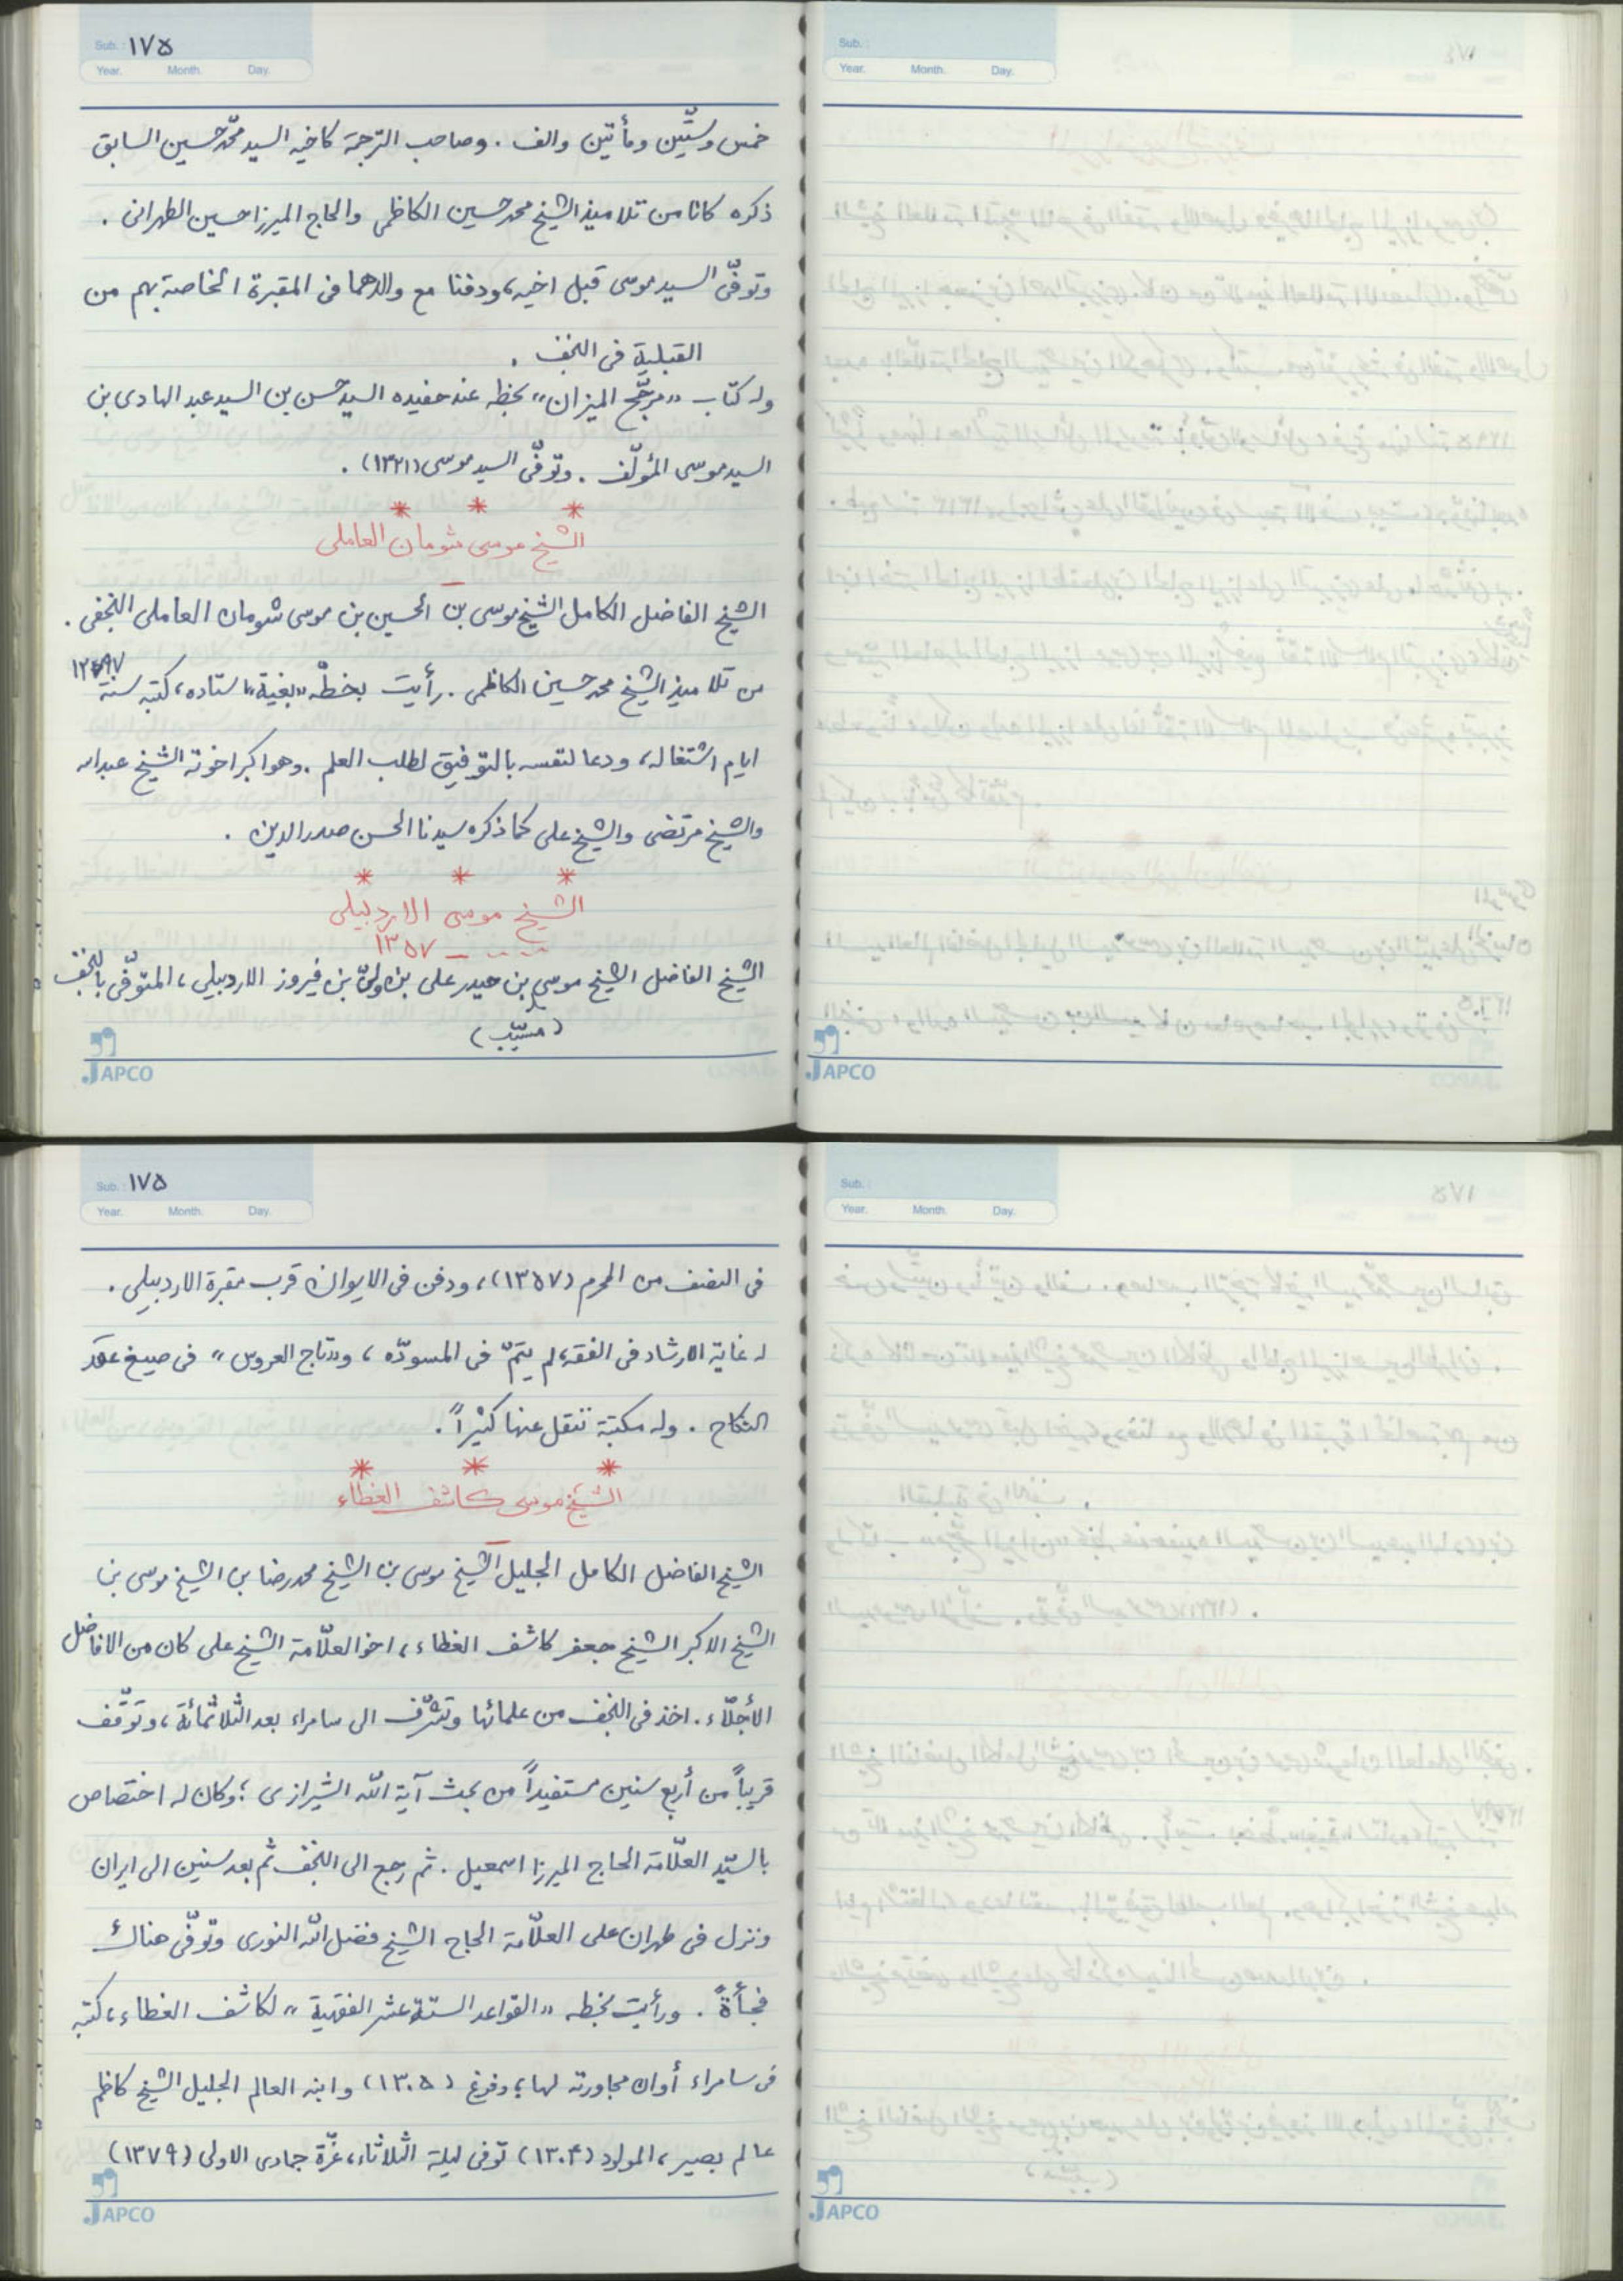 Sub.: ١٧۵
Year. Month. Day.
خمس وستّین ومأتین والف . وصاحب الترجمة کاخیه السید محمّد حسین السابق
ذکره کانا من تلامیذ الشیخ محمد حسین الکاظمی والحاج المیرزا حسین الطهرانی .
وتوفّی السید موسی قبل اخیه، ودفنا مع والدهما فی المقبرة الخاصة بهم من
القبلیة فی النجف .
وله کتاب «مرجّح المیزان» بخطه عند حفیده السید حسن بن السید عبد الهادی بن
السید موسی المؤلّف . وتوفّی السید موسی (١٣٢١) .
* * *
الشیخ موسی شومان العاملی
الشیخ الفاضل الکامل الشیخ موسی بن الحسین بن موسی شومان العاملی النجفی .
من تلامیذ الشیخ محمد حسین الکاظمی . رأیت بخطّه «بغیة» استاده، کتبه سنة
ایام اشتغاله، ودعا لنفسه بالتوفیق لطلب العلم . وهو اکبر اخوته الشیخ عبدالله
والشیخ مرتضی والشیخ علی کما ذکره سیدنا الحسن صدرالدین .
* * *
الشیخ موسی الاردبیلی
... – ١٣۵٧
الشیخ الفاضل الشیخ موسی بن حیدر علی بن ولیّ بن فیروز الاردبیلی، المتوفّی بالنجف
JAPCO
Sub.:
Year. Month. Day.
JAPCO
Sub.: ١٧۵
Year. Month. Day.
فی النصف من المحرم (١٣۵٧)، ودفن فی الایوان قرب مقبرة الاردبیلی .
له غایة الارشاد فی الفقه، لم یتمّ فی المسودّه، و«تاج العروس» فی صیغ عقد
النکاح . وله مکتبة ننقل عنها کثیراً .
* * *
الشیخ موسی کاشف الغطاء
الشیخ الفاضل الکامل الجلیل الشیخ موسی بن الشیخ محمد رضا بن الشیخ موسی بن
الشیخ الاکبر الشیخ جعفر کاشف الغطاء، اخو العلّامة الشیخ علی کان من الافاضل
الأجلّاء . اخذ فی النجف من علمائها وتشرّف الی سامراء بعد الثلاثمائة، وتوّقف
قریباً من أربع سنین مستفیداً من بحث آیة الله الشیرازی؛ وکان له اختصاص
بالسیّد العلّامة الحاج المیرزا اسمعیل . ثم رجع الی النجف ثم بعد سنین الی ایران
ونزل فی طهران علی العلّامة الحاج الشیخ فضل الله النوری وتوفّی هناک
فجأةً . ورأیت بخطه «القواعد الستّة عشر الفقهیة» لکاشف الغطاء، کتبه
فی سامراء أوان مجاورته لها، وفرغ (١٣٠۵) وابنه العالم الجلیل الشیخ کاظم
عالم بصیر، المولود (١٣٠۴) توفی لیلة الثلاثاء، غرّة جمادی الاولی (١٣٧٩)
JAPCO
Sub.:
Year. Month. Day.
JAPCO